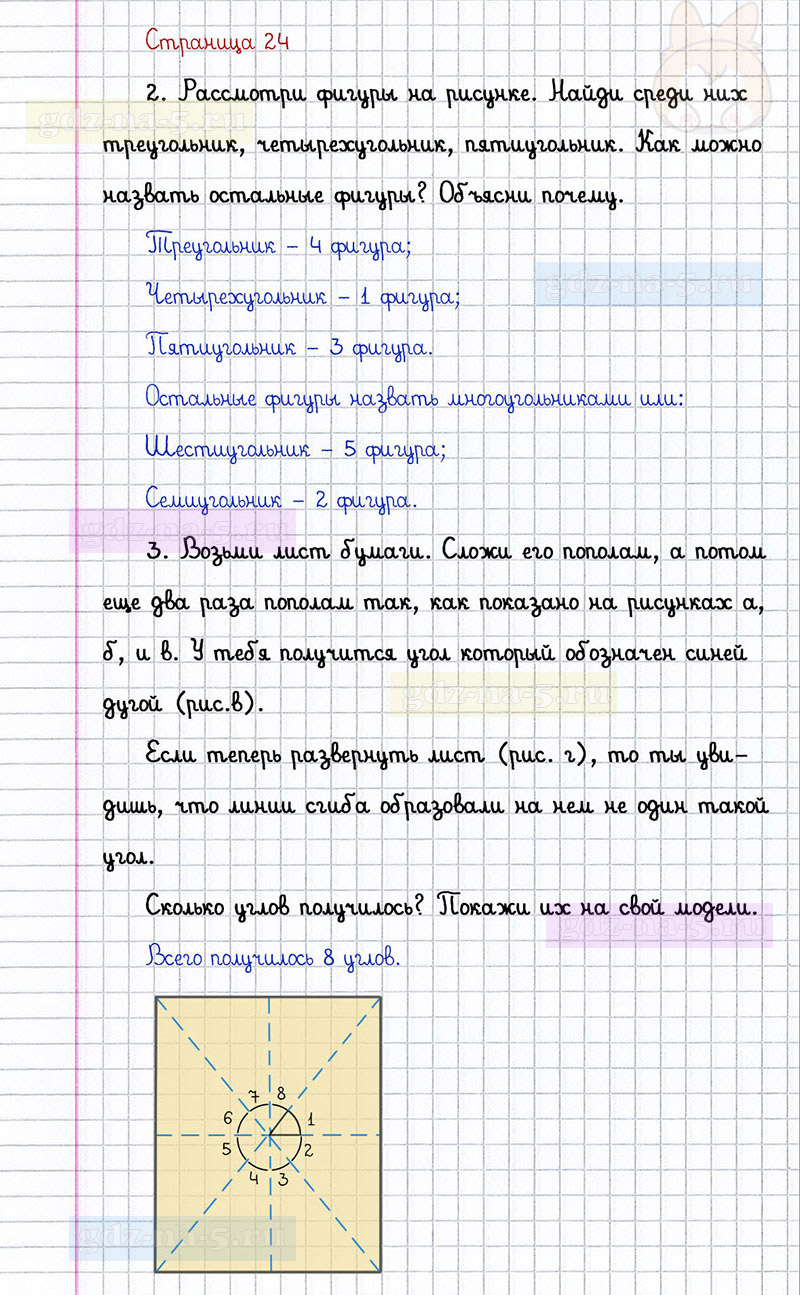 Страница 24
2. Рассмотри фигуры на рисунке. Найди среди них
gdz-na-5.ru
треугольник, четырехугольник, пятиугольник. Как можно
назвать остальные фигуры? Объясни почему.
Треугольник – 4 фигура;
gdz-na-5.ru
Четырехугольник – 1 фигура;
Пятиугольник – 3 фигура.
Остальные фигуры назвать многоугольниками или:
Шестиугольник – 5 фигура;
Семиугольник – 2 фигура.
gdz-na-5.ru
3. Возьми лист бумаги. Сложи его пополам, а потом
еще два раза пополам так, как показано на рисунках а,
б, и в. У тебя получится угол который обозначен синей
gdz-na-5.ru
дугой (рис.в).
Если теперь развернуть лист (рис. г), то ты уви-
дишь, что линии сгиба образовали на нем не один такой
угол.
Сколько углов получилось? Покажи их на свой модели.
gdz-na-5.ru
Всего получилось 8 углов.
7 8
6 1
5 2
4 3
gdz-na-5.ru